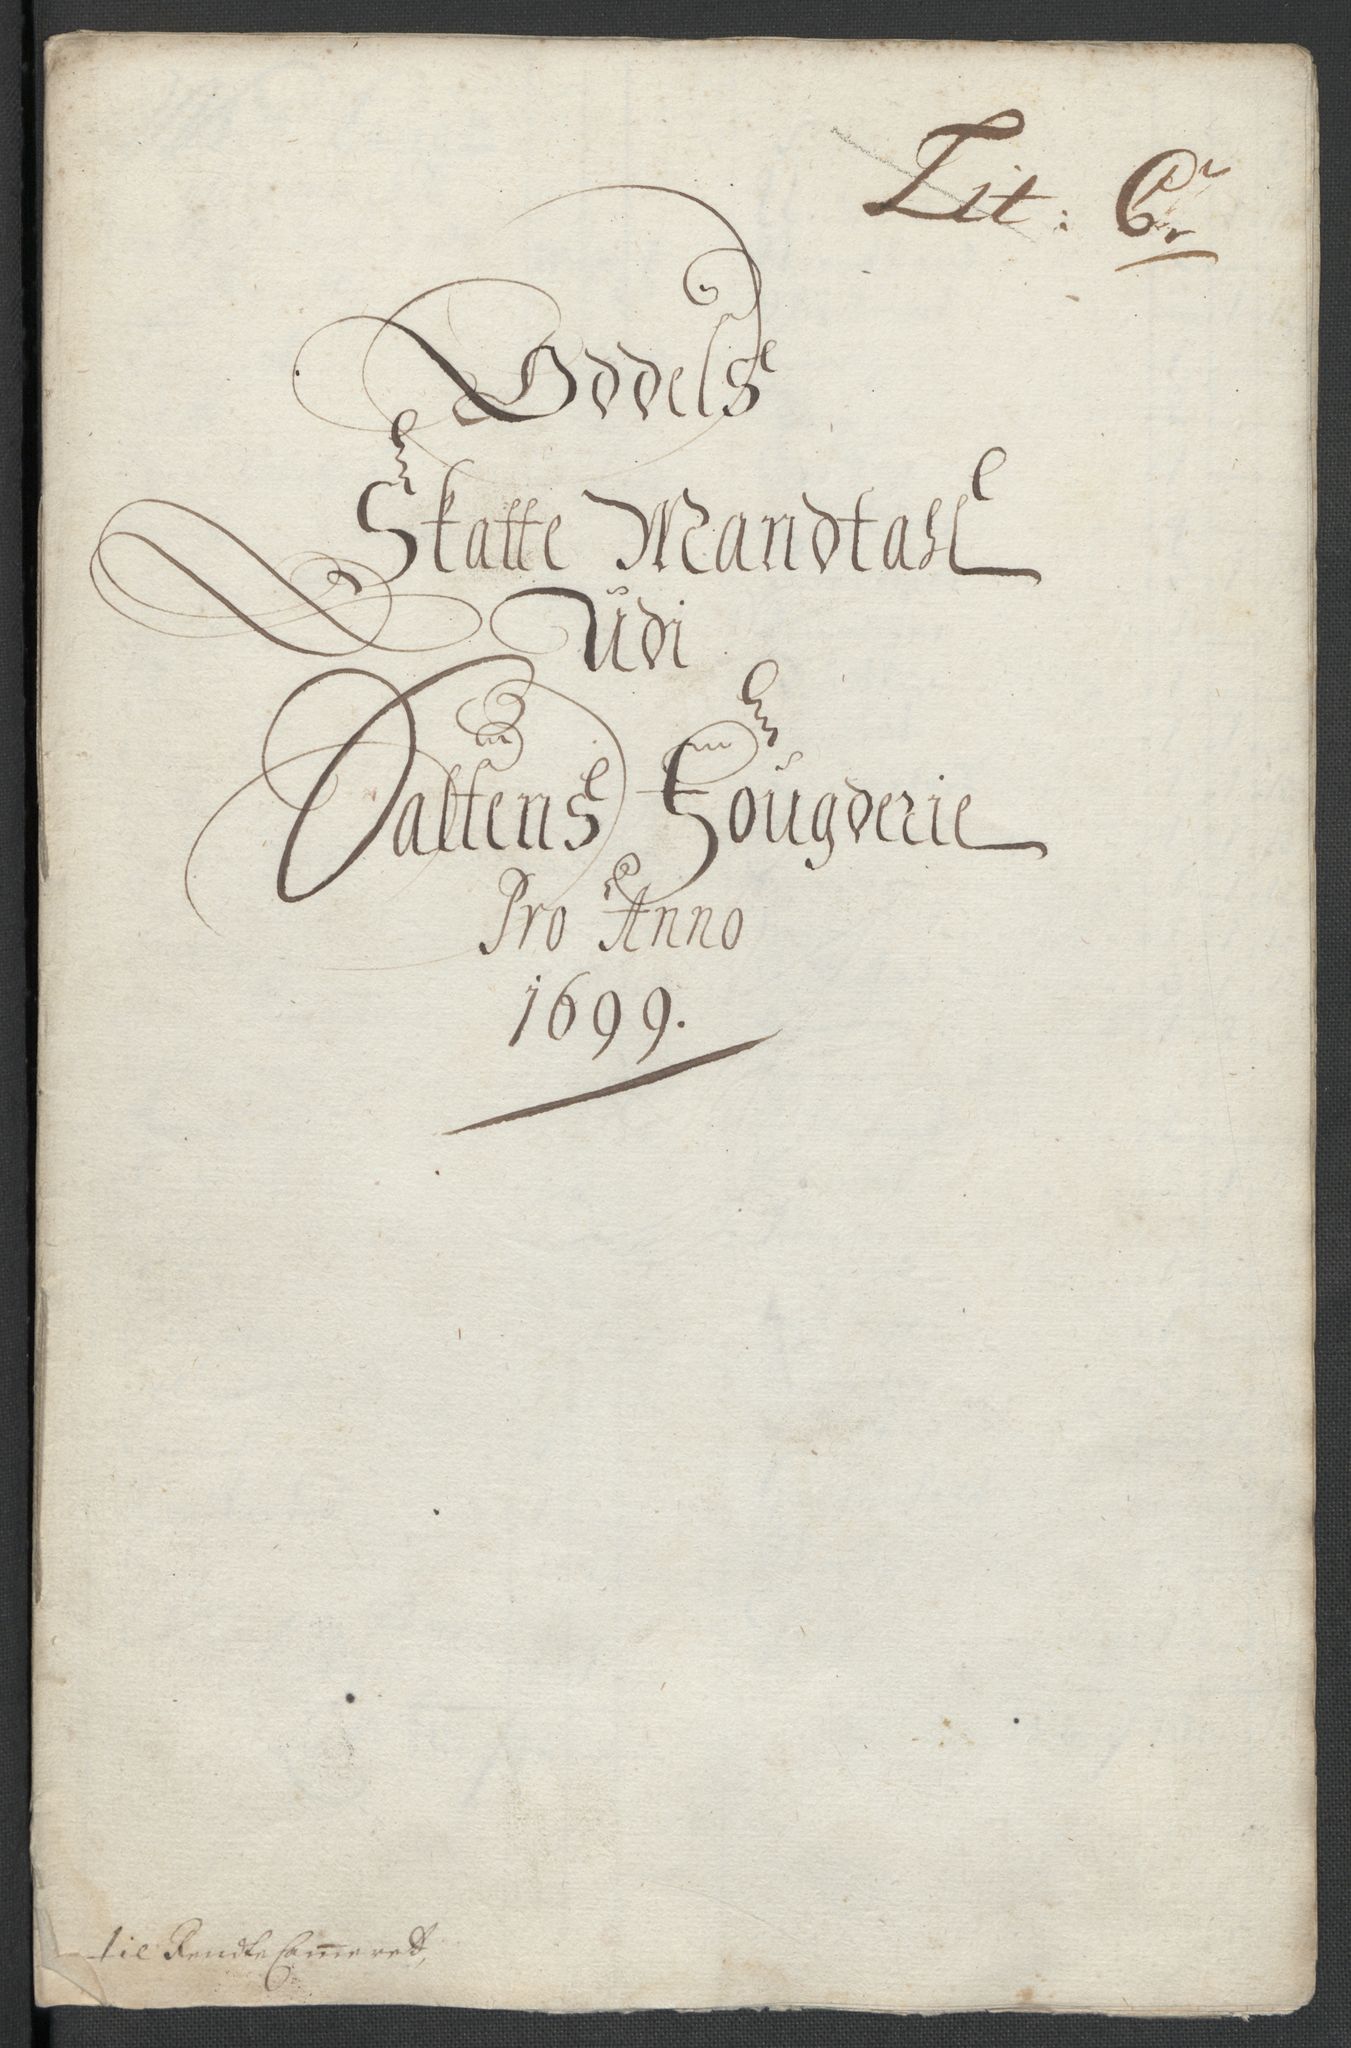 Lit: C
Oddels
Skatte Mandtall
Udi
Saltens Fougderie
Pro Anno
1699.
til Rendte Cammeret,